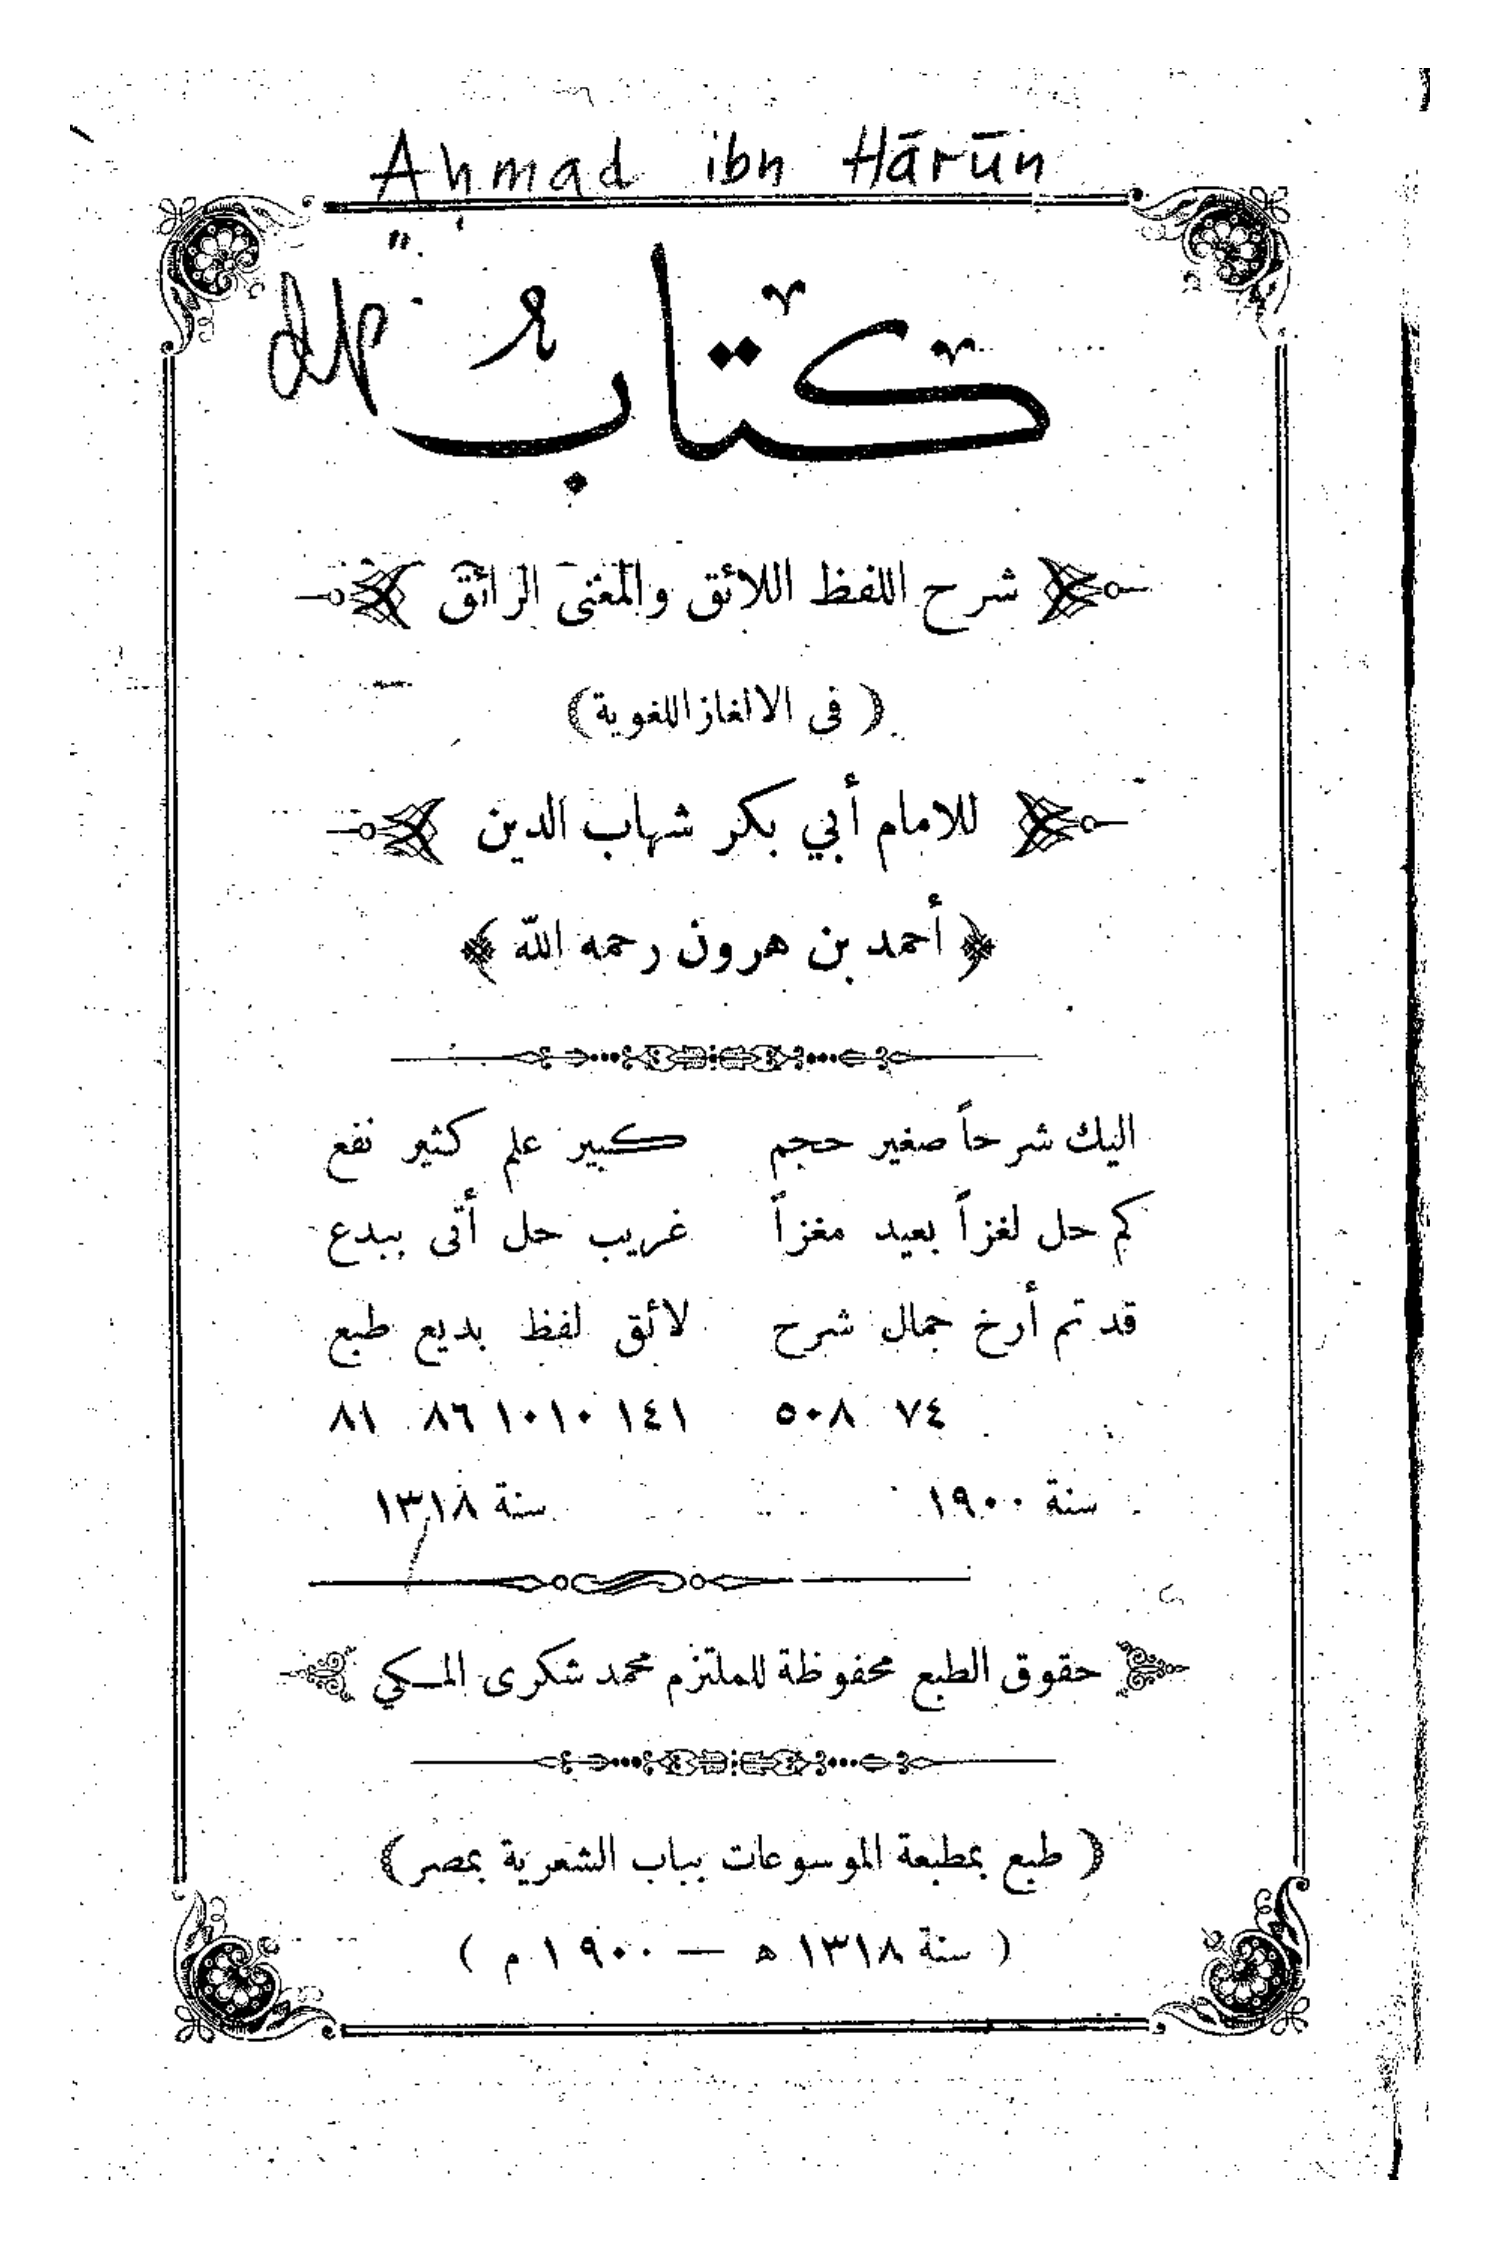 Aḥmad ibn Hārūn
كتاب
شرح اللفظ اللائق والمعنى الرائق
( فى الالغاز اللغوية )
للامام أبي بكر شهاب الدين
﴿ أحمد بن هرون رحمه الله ﴾
اليك شرحاً صغير حجم كبير علم كثير نفع
كم حل لغزاً بعيد مغزاً غريب حل أتى ببدع
قد تم أرخ جمال شرح لائق لفظ بديع طبع
٧٤ ٥٠٨ ١٤١ ١٠١٠ ٨٦ ٨١
سنة ١٩٠٠ سنة ١٣١٨
حقوق الطبع محفوظة للملتزم محمد شكرى المكي
( طبع بمطبعة الموسوعات بباب الشعرية بمصر )
( سنة ١٣١٨ ه — ١٩٠٠ م )